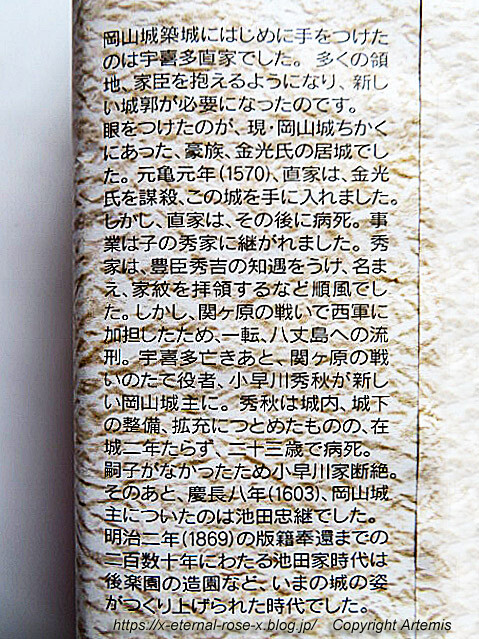 岡山城築城にはじめに手をつけた
のは宇喜多直家でした。多くの領
地、家臣を抱えるようになり、新し
い城郭が必要になったのです。
眼をつけたのが、現・岡山城ちかく
にあった、豪族、金光氏の居城でし
た。元亀元年(1570)、直家は、金光
氏を謀殺、この城を手に入れました。
しかし、直家は、その後に病死。事
業は子の秀家に継がれました。秀
家は、豊臣秀吉の知遇をうけ、名ま
え、家紋を拝領するなど順風でし
た。しかし、関ヶ原の戦いで西軍に
加担したため、一転、八丈島への流
刑。宇喜多亡きあと、関ヶ原の戦
いのたて役者、小早川秀秋が新し
い岡山城主に。秀秋は城内、城下
の整備、拡充につとめたものの、在
城二年たらず、二十三歳で病死。
嗣子がなかったため小早川家断絶。
そのあと、慶長八年(1603)、岡山城
主についたのは池田忠継でした。
明治二年(1869)の版籍奉還までの
二百数十年にわたる池田家時代は
後楽園の造園など、いまの城の姿
がつくり上げられた時代でした。
https://x-eternal-rose-x.blog.jp/ Copyright Artemis